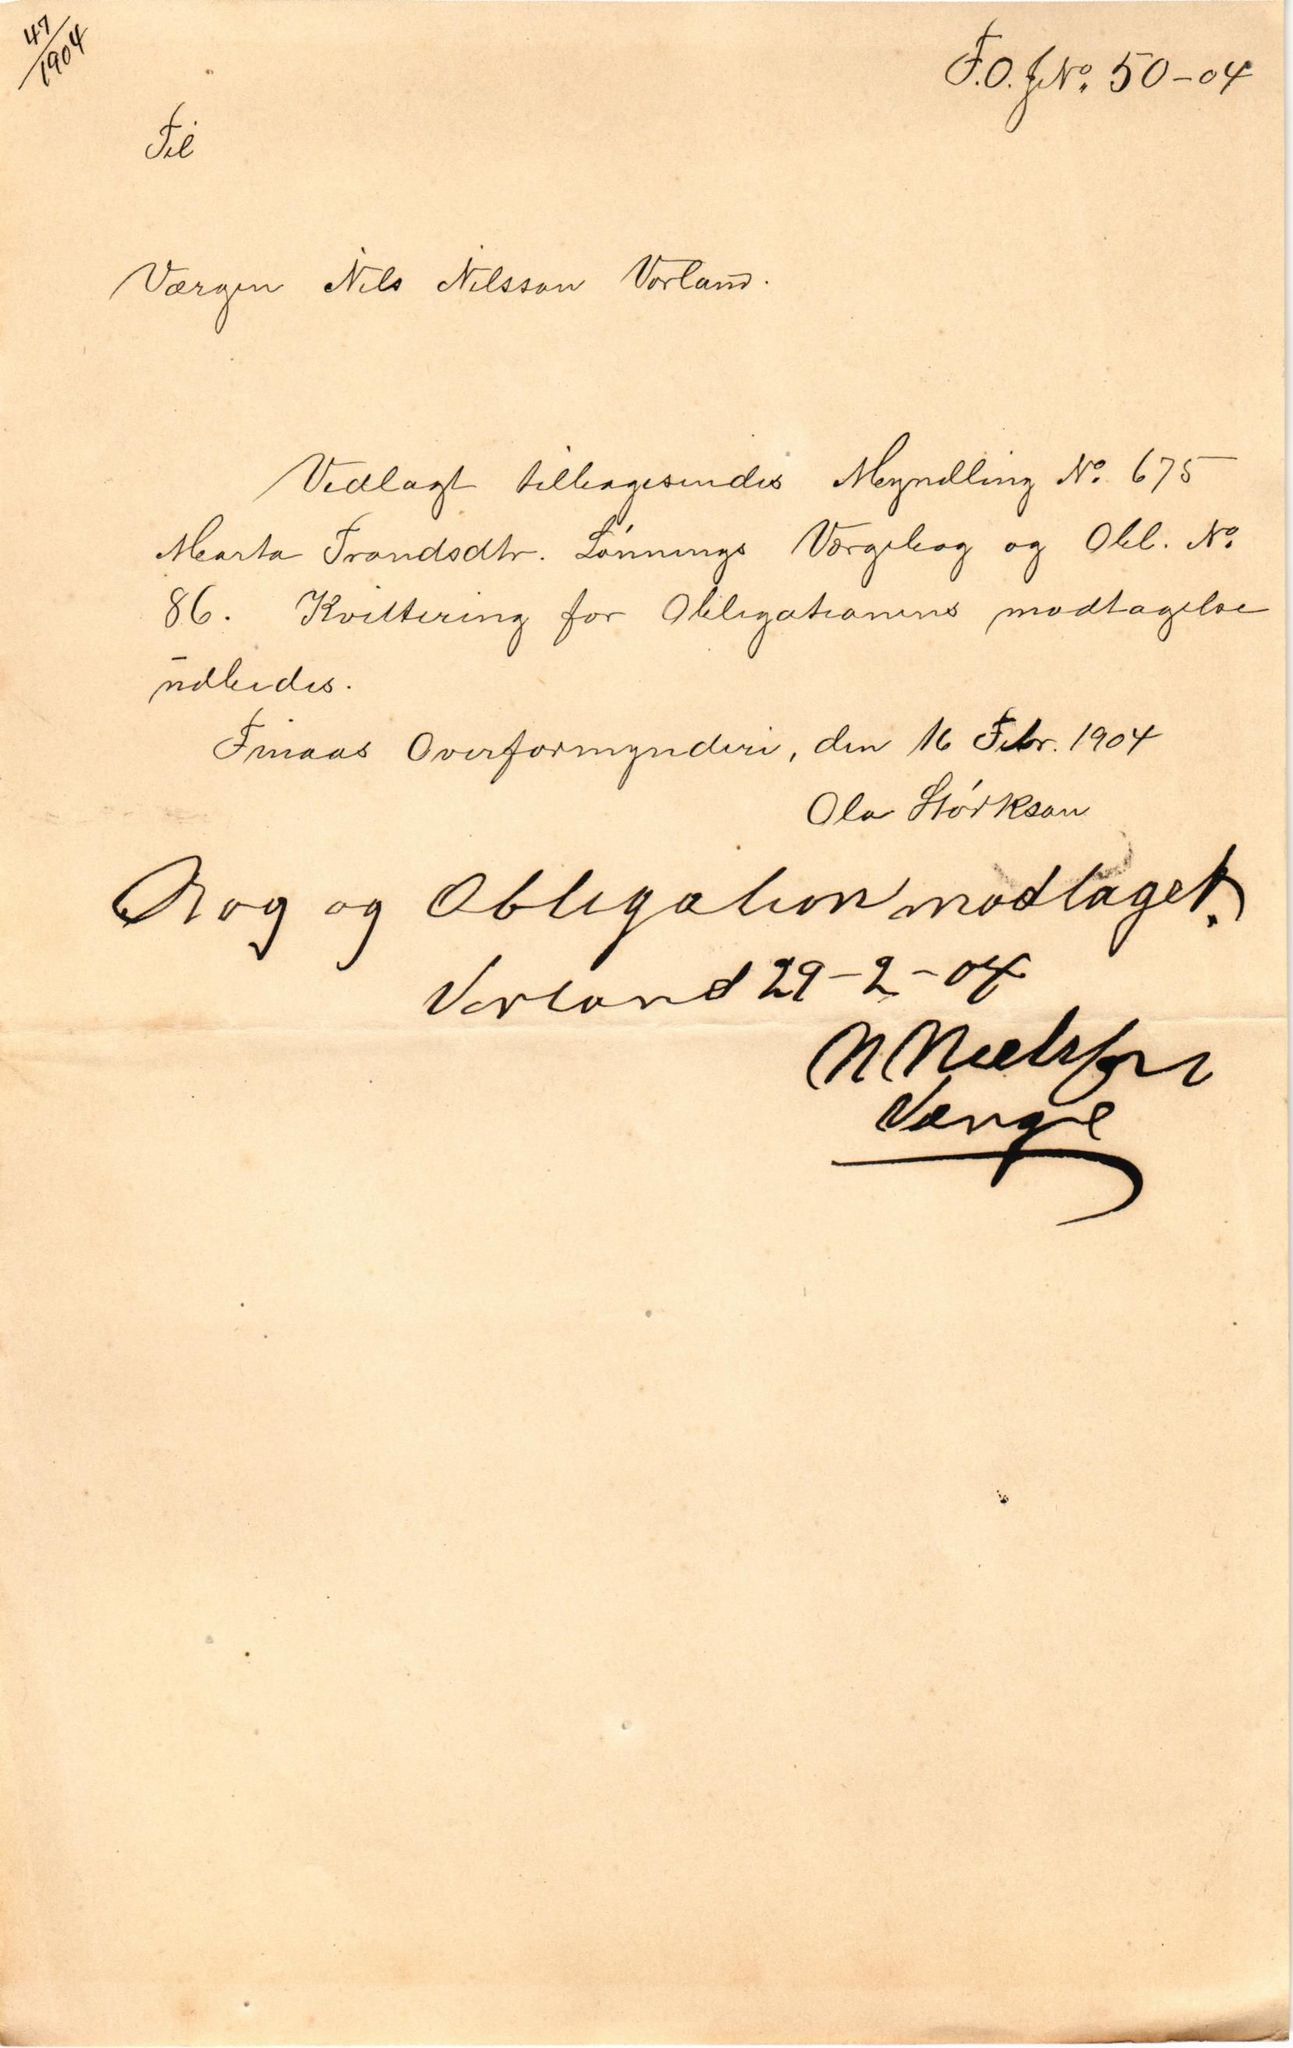 47/1904
F.O. J.No. 50-04
Til
Værgen Nils Nilsson Vorland.
Vedlagt tilbagesendes Myndling No. 675
Marta Trondsdtr. Lønnings Værgebog og Obl. No.
86. Kvittering for Obligationens modtagelse
udbedes.
Finaas Overformynderi, den 16 Febr. 1904
Ola Størkson
Bog og Obligation modtaget.
Vorland 29-2-04
N Nielsson
Værge